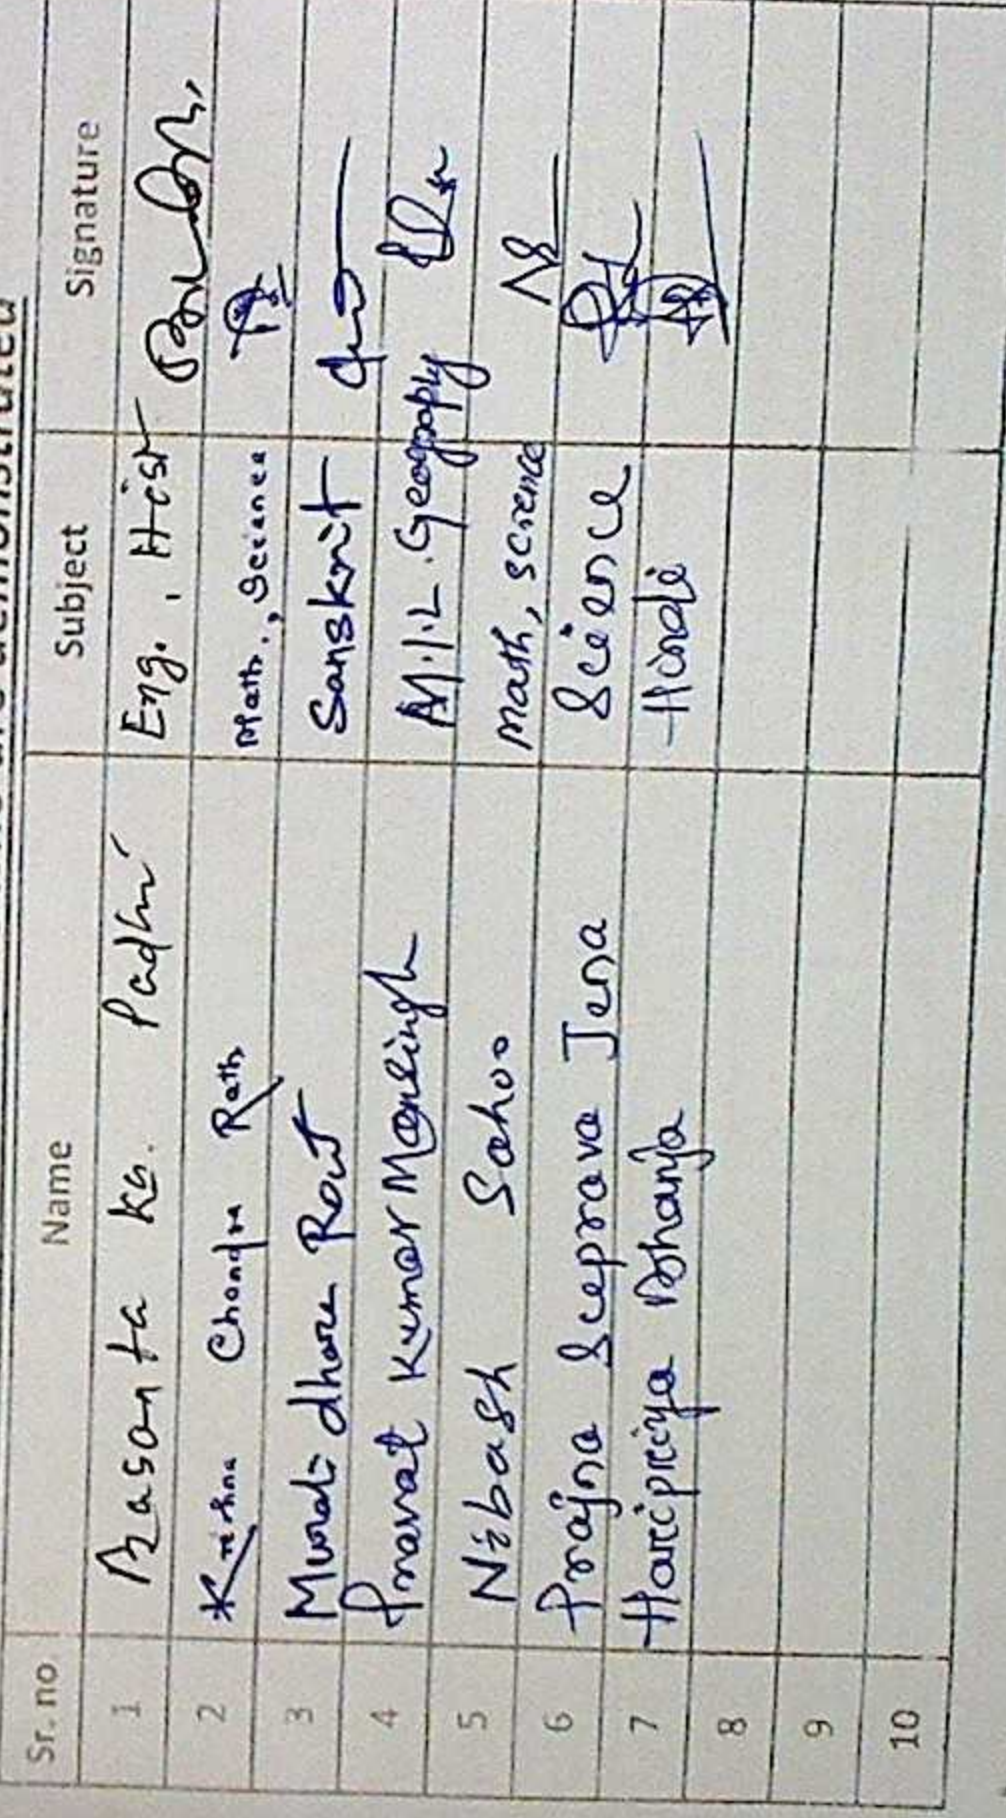 demonstrated
Sr. no Name Subject Signature
1 Basanta kr. Padhi Eng., Hist
2 Krishna Chandra Rath Math., Science
3 Muralidhara Rout Sanskrit
4 Pravat Kumar Mansingh M.I.L. Geography
5 Nibash Sahoo Math, Science
6 Prajna Sceprava Jena Science
7 Haripriya Bhanja Hindi
8
9
10